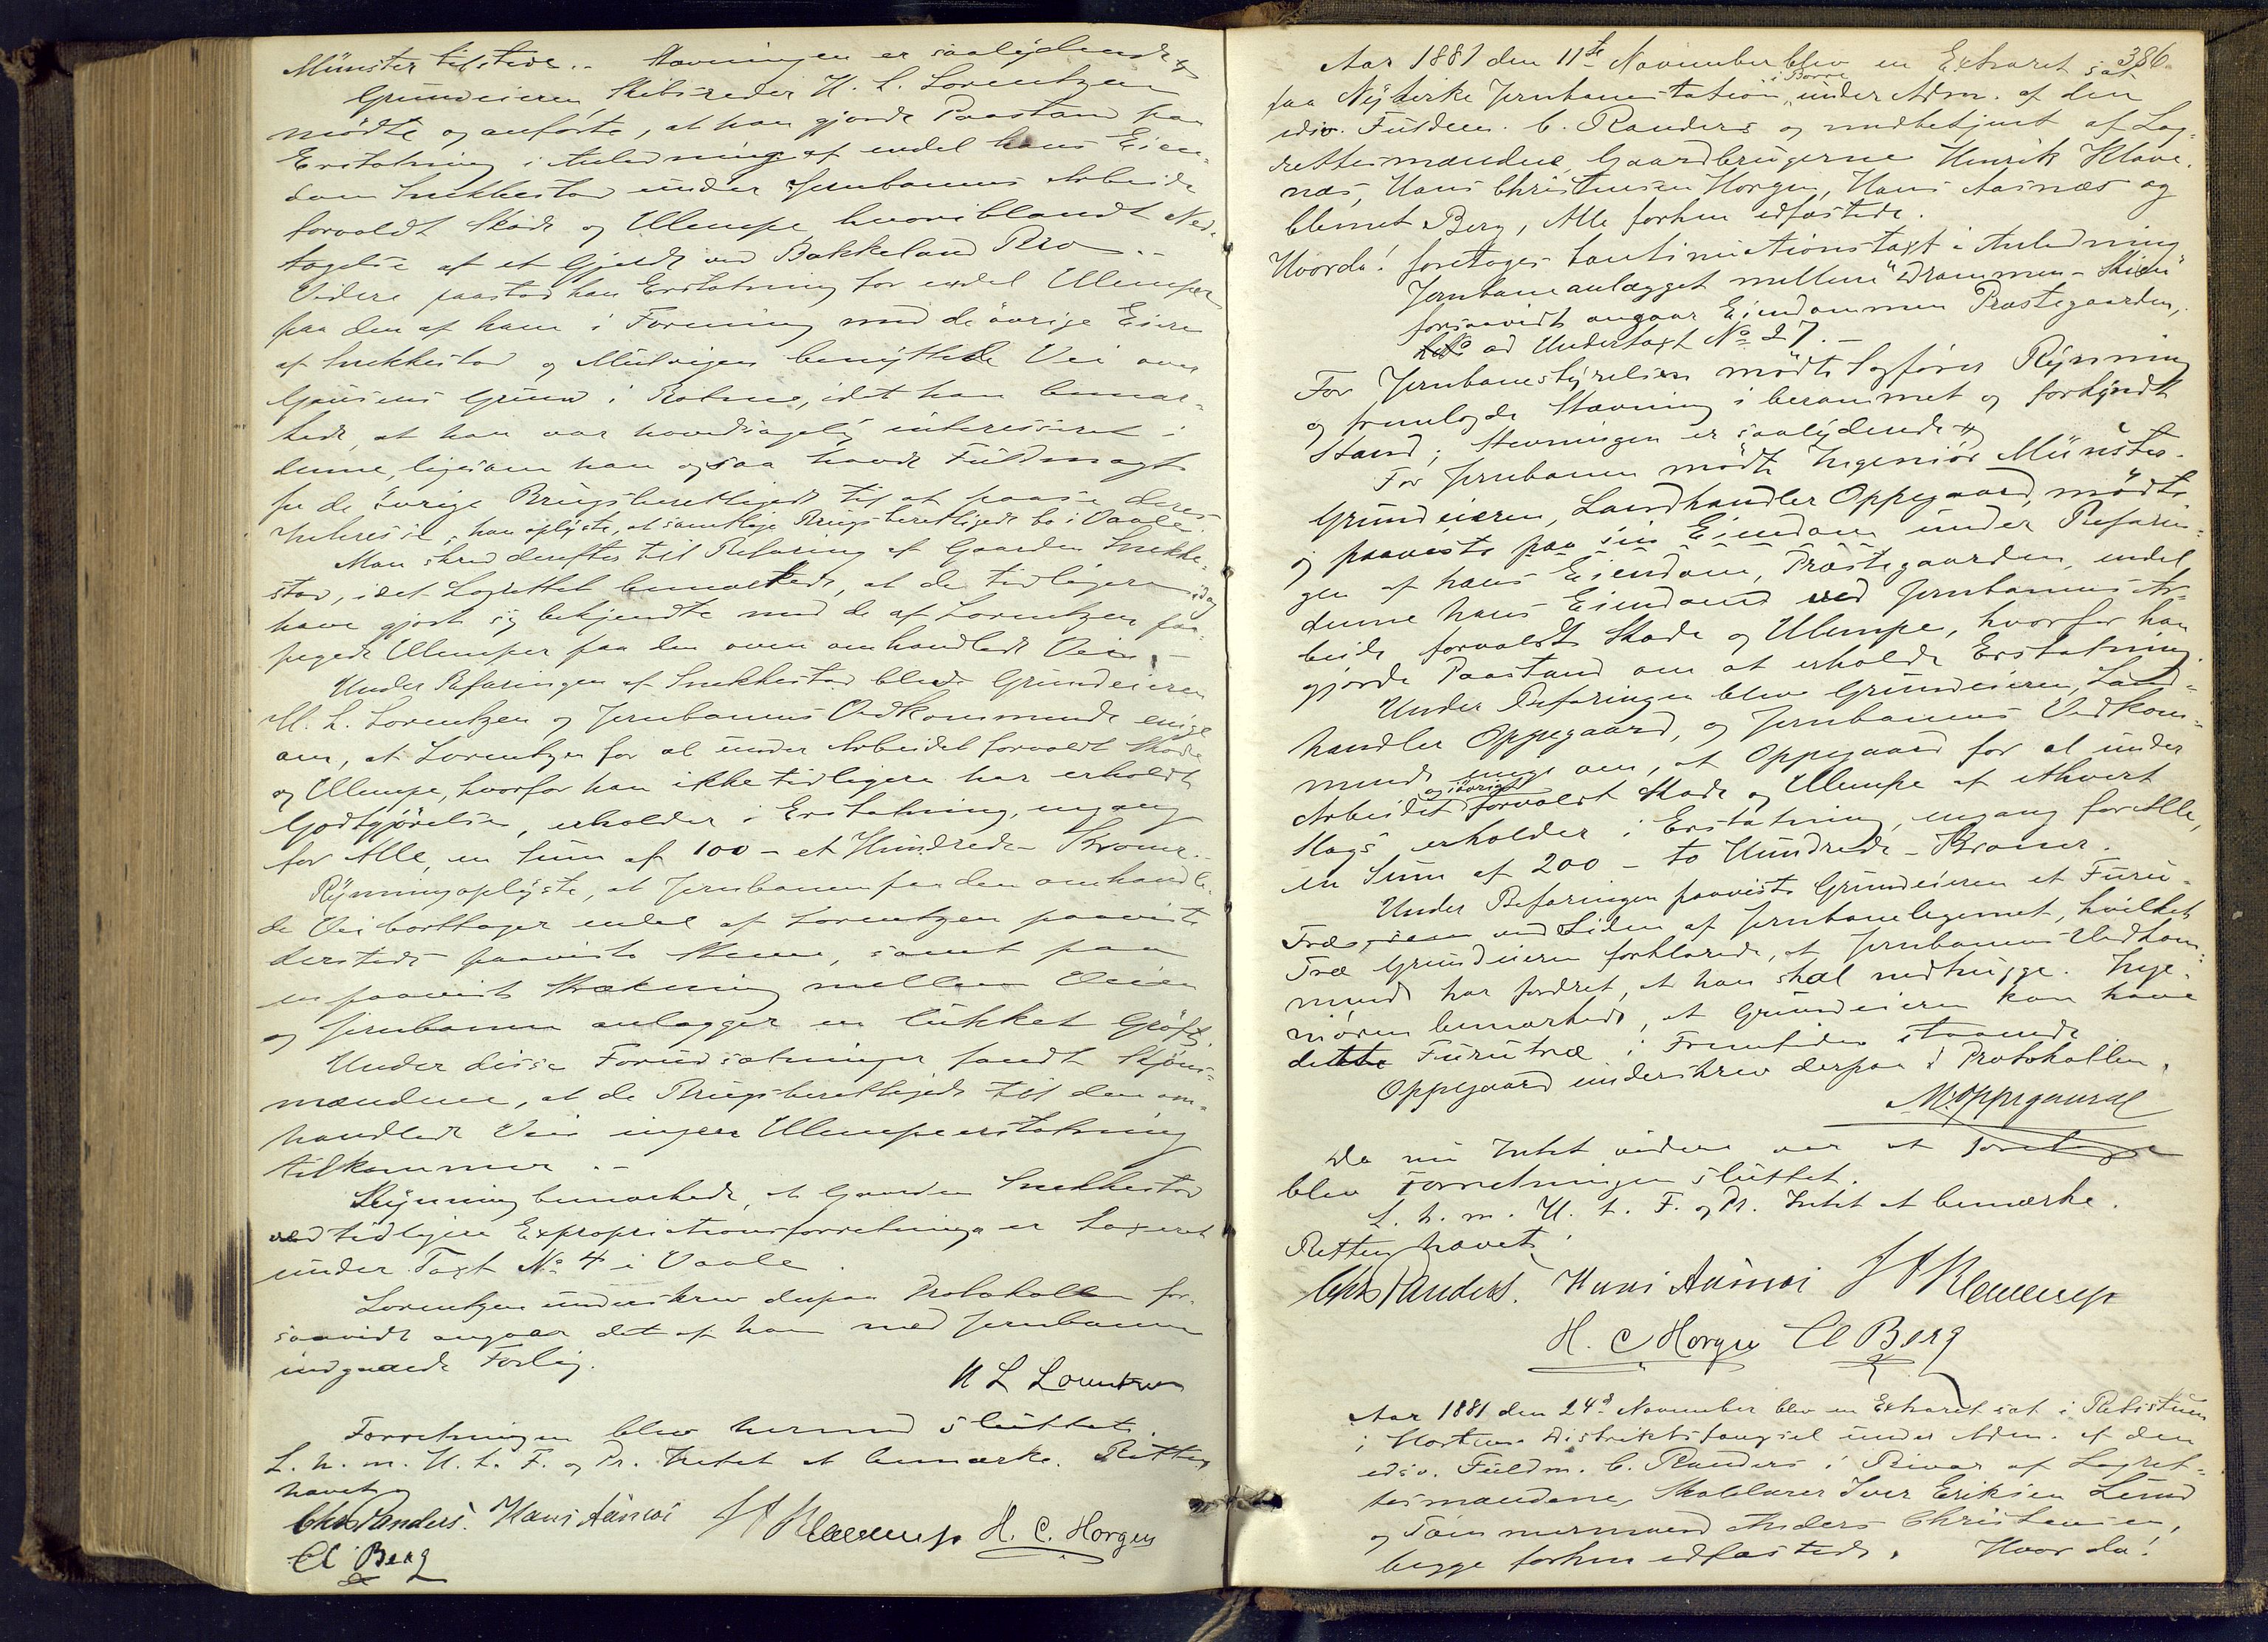 Münster tilstede.. Stævningen er saalydende
Grundeieren, Skibsreder H. L. Lorentzen
mödte og anförte, at han gjorde Paastand paa
Erstatning i Anledning af endel hans Eien-
dom Snekkestad under Jernbanens Arbeide
forvoldt Skade og Ulempe, hvoriblandt Ned-
tagelse af et Gjerde ved Bakkeland Bro. -
Videre paastod han Erstatning for endel Ulemper
paa den af ham i Forening med de övrige Eiere
af Snekkestad og Mulvigen benyttede Vei over
Grund i, idet han bemær-
kede, at han var hovedsagelig interesseret i
denne, ligesom han ogsaa havde Fuldmagt
fra de övrige Brugsberettigede til at paase deres
Interesse; han oplyste, at samtlige Brugsberettigede bo i Vaale.
Man skred derefter til Befaring af Gaarden Snekke-
stad, idet Lagrettet bemærkede, at de tidligere idag
have gjort sig bekjendte med de af Lorentzen paa-
pegede Ulemper paa den oven omhandlede Vei. -
Under Befaringen af Snekkestad bleve Grundeieren
H. L. Lorentzen og Jernbanens Vedkommende enige
om, at Lorentzen for al under Arbeidet forvoldt Skade
og Ulempe, hvorfor han ikke tidligere har erholdt
Godtgjörelse, erholder i Erstatning, engang
for Alle, en Sum af 100 - et Hundrede - Kroner. -
Rynning oplyste, at Jernbanen paa den omhandle-
de Vei borttager endel af Lorentzen paaviste
dersteds paaviste Stene, samt paa
en paavist Strækning mellem Veien
og Jernbanen anlægger en lukket Gröft.
Under disse Forudsætninger fandt Skjöns-
mændene, at de Brugsberettigede til den om-
handlede Vei ingen Ulempeerstatning
tilkommer. -
Rynning bemærkede, at Gaarden Snekkestad
ved tidligere Expropriationsforretninger er taxeret
under Taxt No 4 i Vaale.
Lorentzen underskrev derpaa Protokollen for-
saavidt angaar det af ham med Jernbanen
indgaaede Forlig.
H L Lorentzen
Forretningen blev hermed sluttet.
L. h. m. H. t. F. og Pr. Intet at bemærke. Retten
hævet
Chr Randers. Hans Aasnæs H. C. Horgen
Cl Berg
386.
Aar 1881 den 11te November blev en Extraret sat
paa Nykirke Jernbanestation i Borre under Adm. af den
edsv. Fuldm. C. Randers og medbetjent af Lag-
rettesmændene Gaardbrugerne Henrik Klave-
næs, Hans Christensen Horgen, Hans Aasnæs og
Clemet Berg, Alle forhen edfæstede.
Hvorda! foretoges Continuationstaxt i Anledning
Jernbaneanlægget mellem "Drammen - Skien"
forsaavidt angaar Eiendommen Præstegaarden,
ad Undertaxt No 27. -
For Jernbanestyrelsen mödte Sagförer Rynning
og fremlagde Stævning i berammet og forkyndt
Stand; Stævningen er saalydende
For Jernbanen mödte Ingeniör Münster.
Grundeieren, Landhandler Oppegaard, mödte
og paaviste paa sin Eiendom under Befarin-
gen af hans Eiendom, Præstegaarden, endel
denne hans Eiendom ved Jernbanens Ar-
beide forvoldt Skade og Ulempe, hvorfor han
gjorde Paastand om at erholde Erstatning.
Under Befaringen blev Grundeieren, Land-
handler Oppegaard, og Jernbanens Vedkom-
mende enige om, at Oppegaard for al under
Arbeidet og iövrigt forvoldt Skade og Ulempe af ethvert
Slags erholder i Erstatning, engang for Alle,
en Sum af 200 - to Hundrede - Kroner.
Under Befaringen paaviste Grundeieren et Furu-
Træ, ved Siden af Jernbanelegemet, hvilket
Træ Grundeieren forklarede, at Jernbanens Vedkom-
mende har fordret, at han skal nedhugge. Inge-
niören bemærkede, at Grundeieren kan have
dette Furutræ i Fremtiden staaende.
Oppegaard underskrev derpaa i Protokollen.
M. Oppegaard
Da nu Intet videre var at foretage
blev Forretningen sluttet.
L. h. m. H. t. F. og Pr. Intet at bemærke.
Retten hævet.
Chr Randers. Hans Aasnæs
H. C Horgen Cl Berg
Aar 1881 den 24de November blev en Extraret sat i
i Horten Distriktsfængsel under Adm. af den
edsv. Fuldm. C. Randers i Bivær af Lagret-
tesmændene, Skolelærer Iver Eriksen Lund
og Tömmermand Anders Christensen,
begge forhen edfæstede. Hvor da!